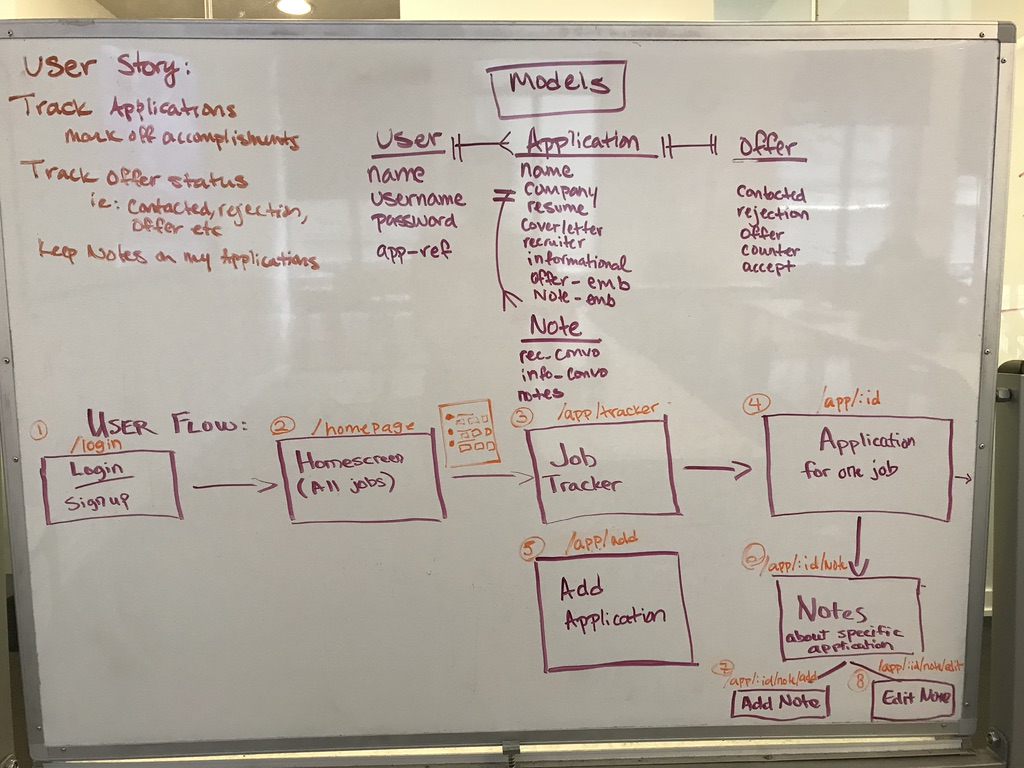 User Story:
Track Applications
mark off accomplisments
Track Offer status
ie: Contacted, rejection,
offer etc
Keep Notes on my Applications
Models
User
name
username
password
app-ref
Application
name
company
resume
coverletter
recruiter
informational
offer-emb
Note-emb
Offer
Contacted
rejection
offer
counter
accept
Note
rec-convo
info-convo
notes
User Flow:
1
/login
Login
Signup
2
/homepage
Homescreen
(All jobs)
3
/app/tracker
Job
Tracker
4
/app/:id
Application
for one job
5
/app/add
Add
Application
6
/app/:id/note
Notes
about specific
application
7
/app/:id/note/add
Add Note
8
/app/:id/note/edit
Edit Note